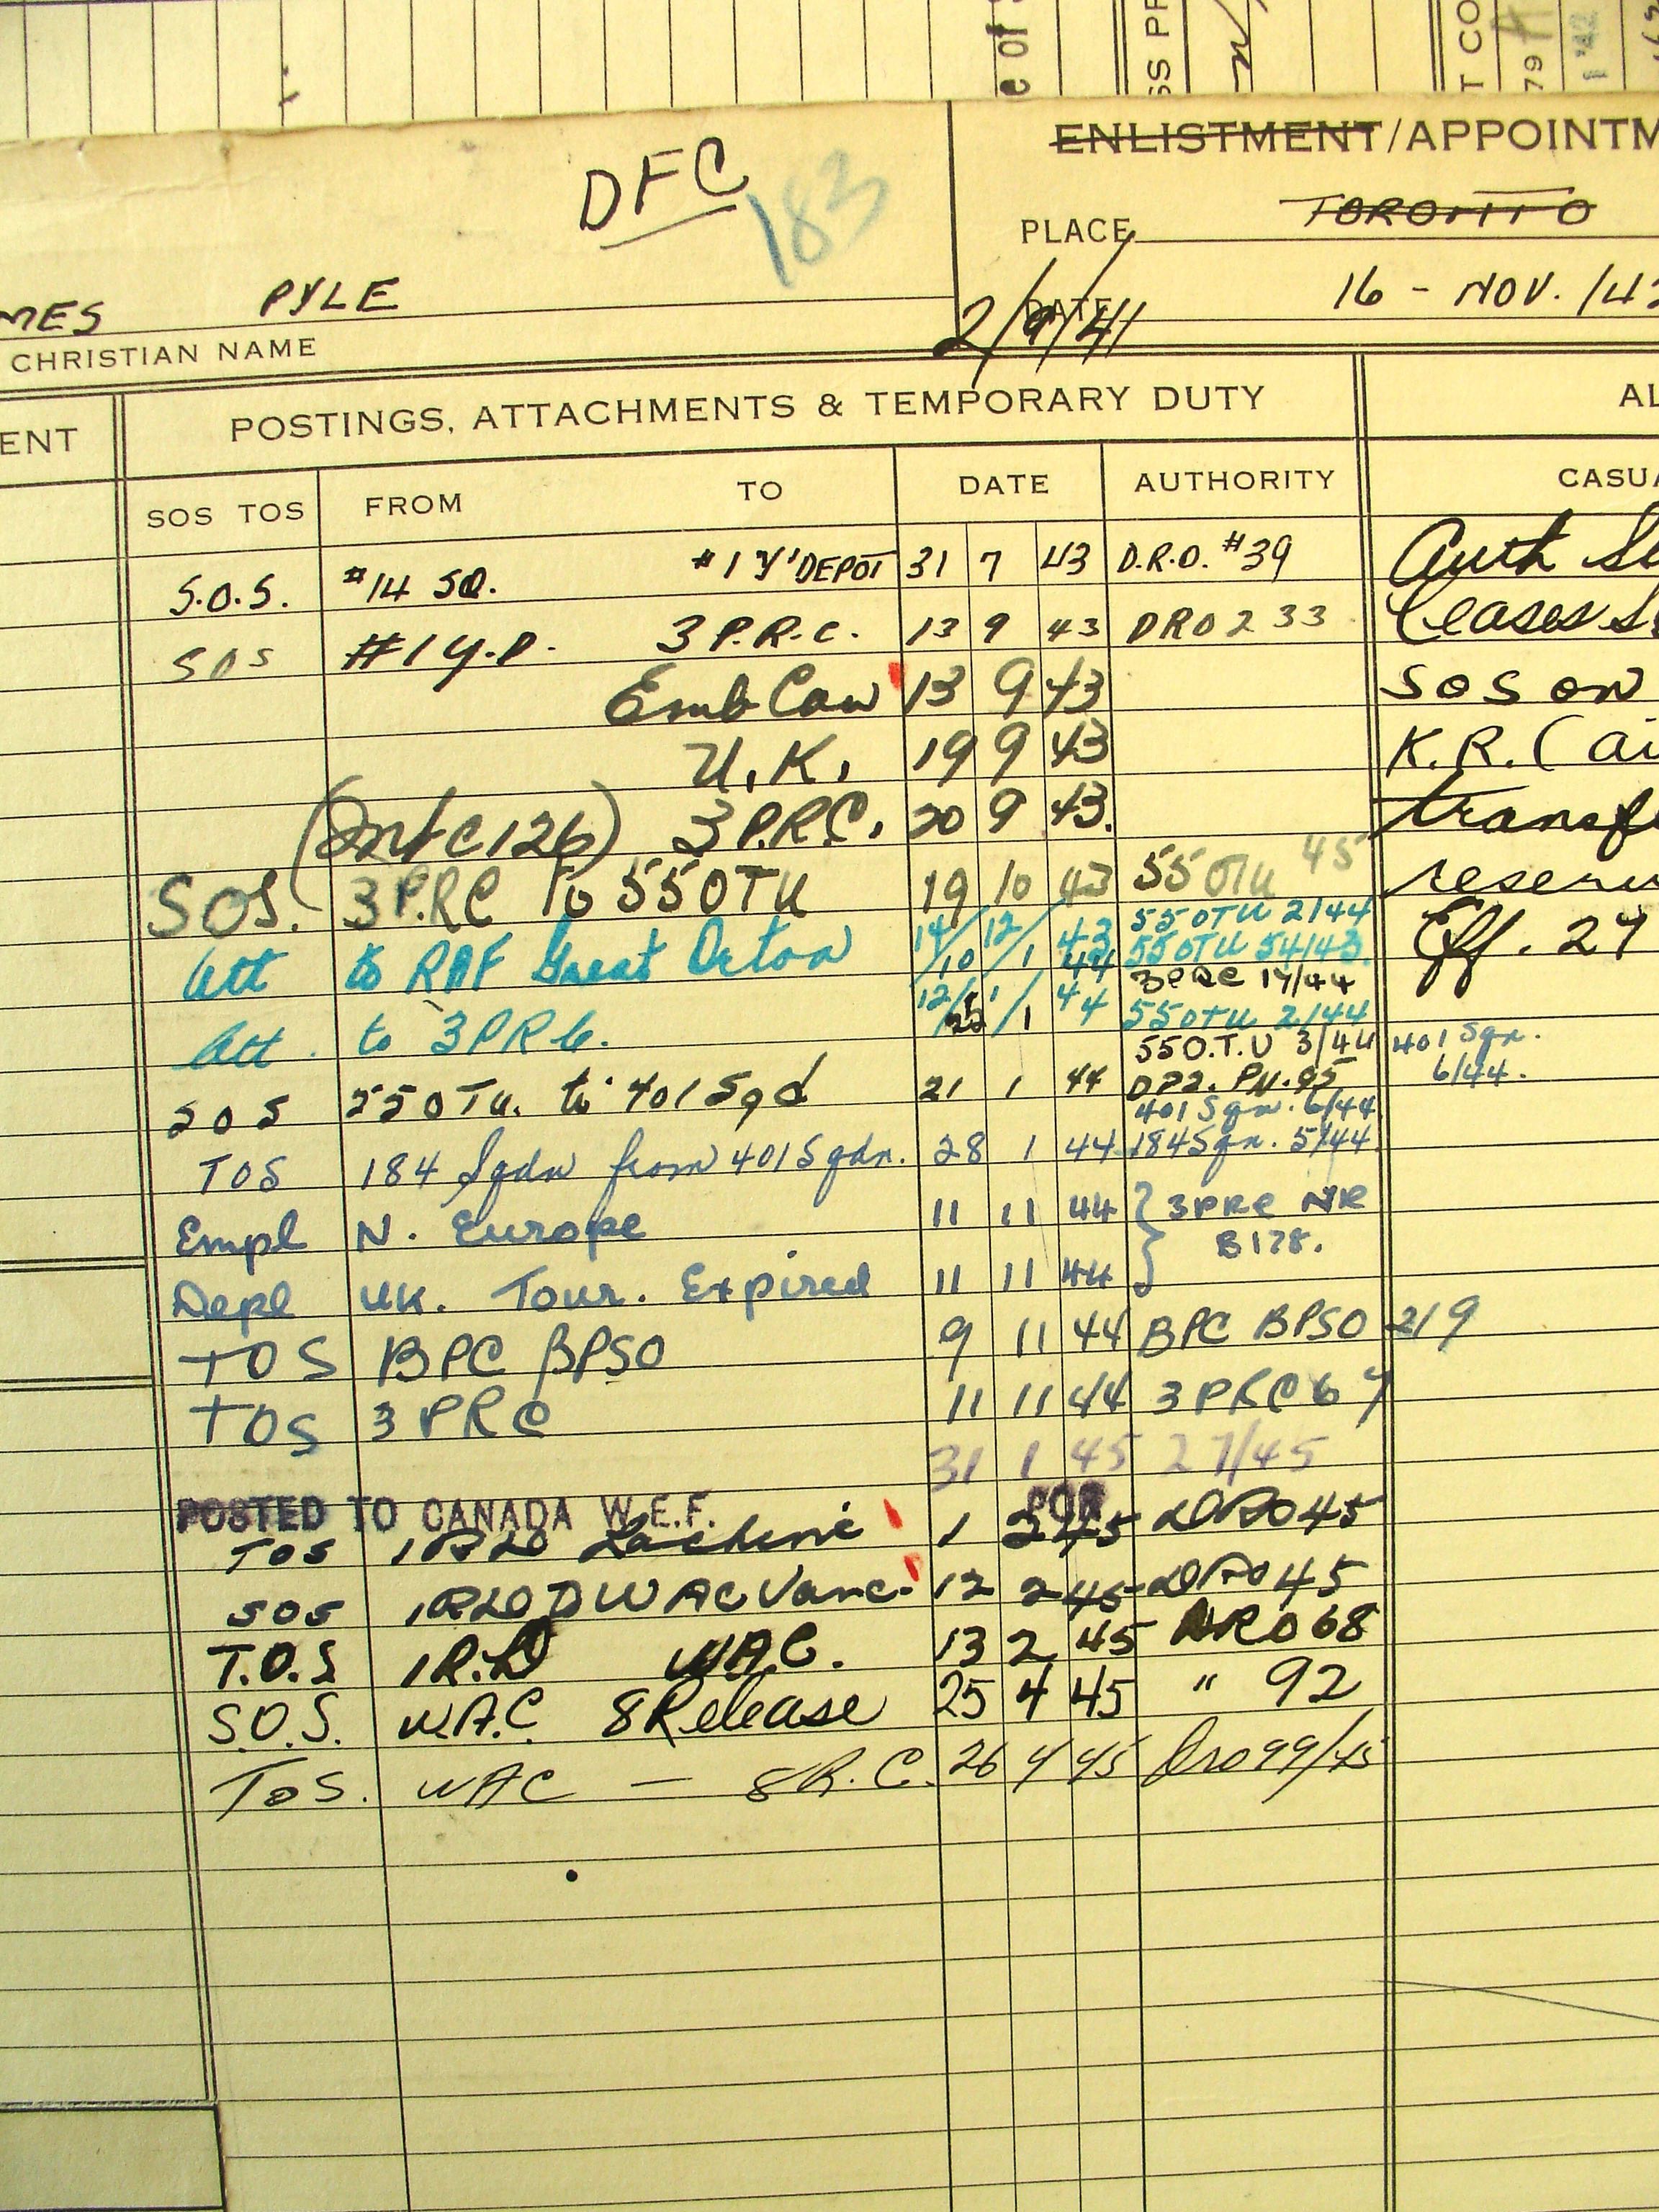 DFC
183
ENLISTMENT/APPOINTM
PLACE TORONTO
MES PYLE
16 - NOV. /42
DATE
2/9/41
CHRISTIAN NAME
ENT POSTINGS, ATTACHMENTS & TEMPORARY DUTY AL
SOS TOS FROM TO DATE AUTHORITY CASUA
S.O.S. #14 SQ. #1 'Y' DEPOT 31 7 43 D.R.O. #39 Auth
SOS #1 Y.D. 3 P.R.C. 13 9 43 DRO 233 Ceases
Emb Can 13 9 43 SOS on
U.K. 19 9 43 K.R. (ai
(Int C126) 3 P.R.C. 20 9 43. transf
SOS. 3 P.RC to 55 OTU 19 10 43 55 OTU 45 reserv
Att to RAF Great Orton 14/10 12/1 43 44 55 OTU 2/44 Eff. 27
55 OTU 54/43.
3PRC 14/44
Att. to 3 PRC. 12/25 1/1 44 55 OTU 2/44
55 O.T.U 3/44 401 Sqn.
SOS 55 OTU. to 401 Sqd 21 1 44 DP2. PN. 95 6/44.
401 Sqn. 6/44
TOS 184 Sqdn from 401 Sqdn. 28 1 44 184 Sqn. 5/44
Empl N. Europe 11 11 44 3PRC NR
B178.
Depl UK. Tour. Expired 11 11 44
TOS BPC BPSO 9 11 44 BPC BPSO 219
TOS 3 PRC 11 11 44 3 PRC 67
31 1 45 27/45
POSTED TO CANADA W.E.F. POR
TOS Lachine 1 2 45 DRO 45
SOS WAC Vanc. 12 2 45 DRO 45
T.O.S 1 R.D WAC. 13 2 45 DRO 68
S.O.S. W.A.C 8 Release 25 4 45 " 92
TOS. WAC — 8 R.C. 26 4 45 Dro 99/45